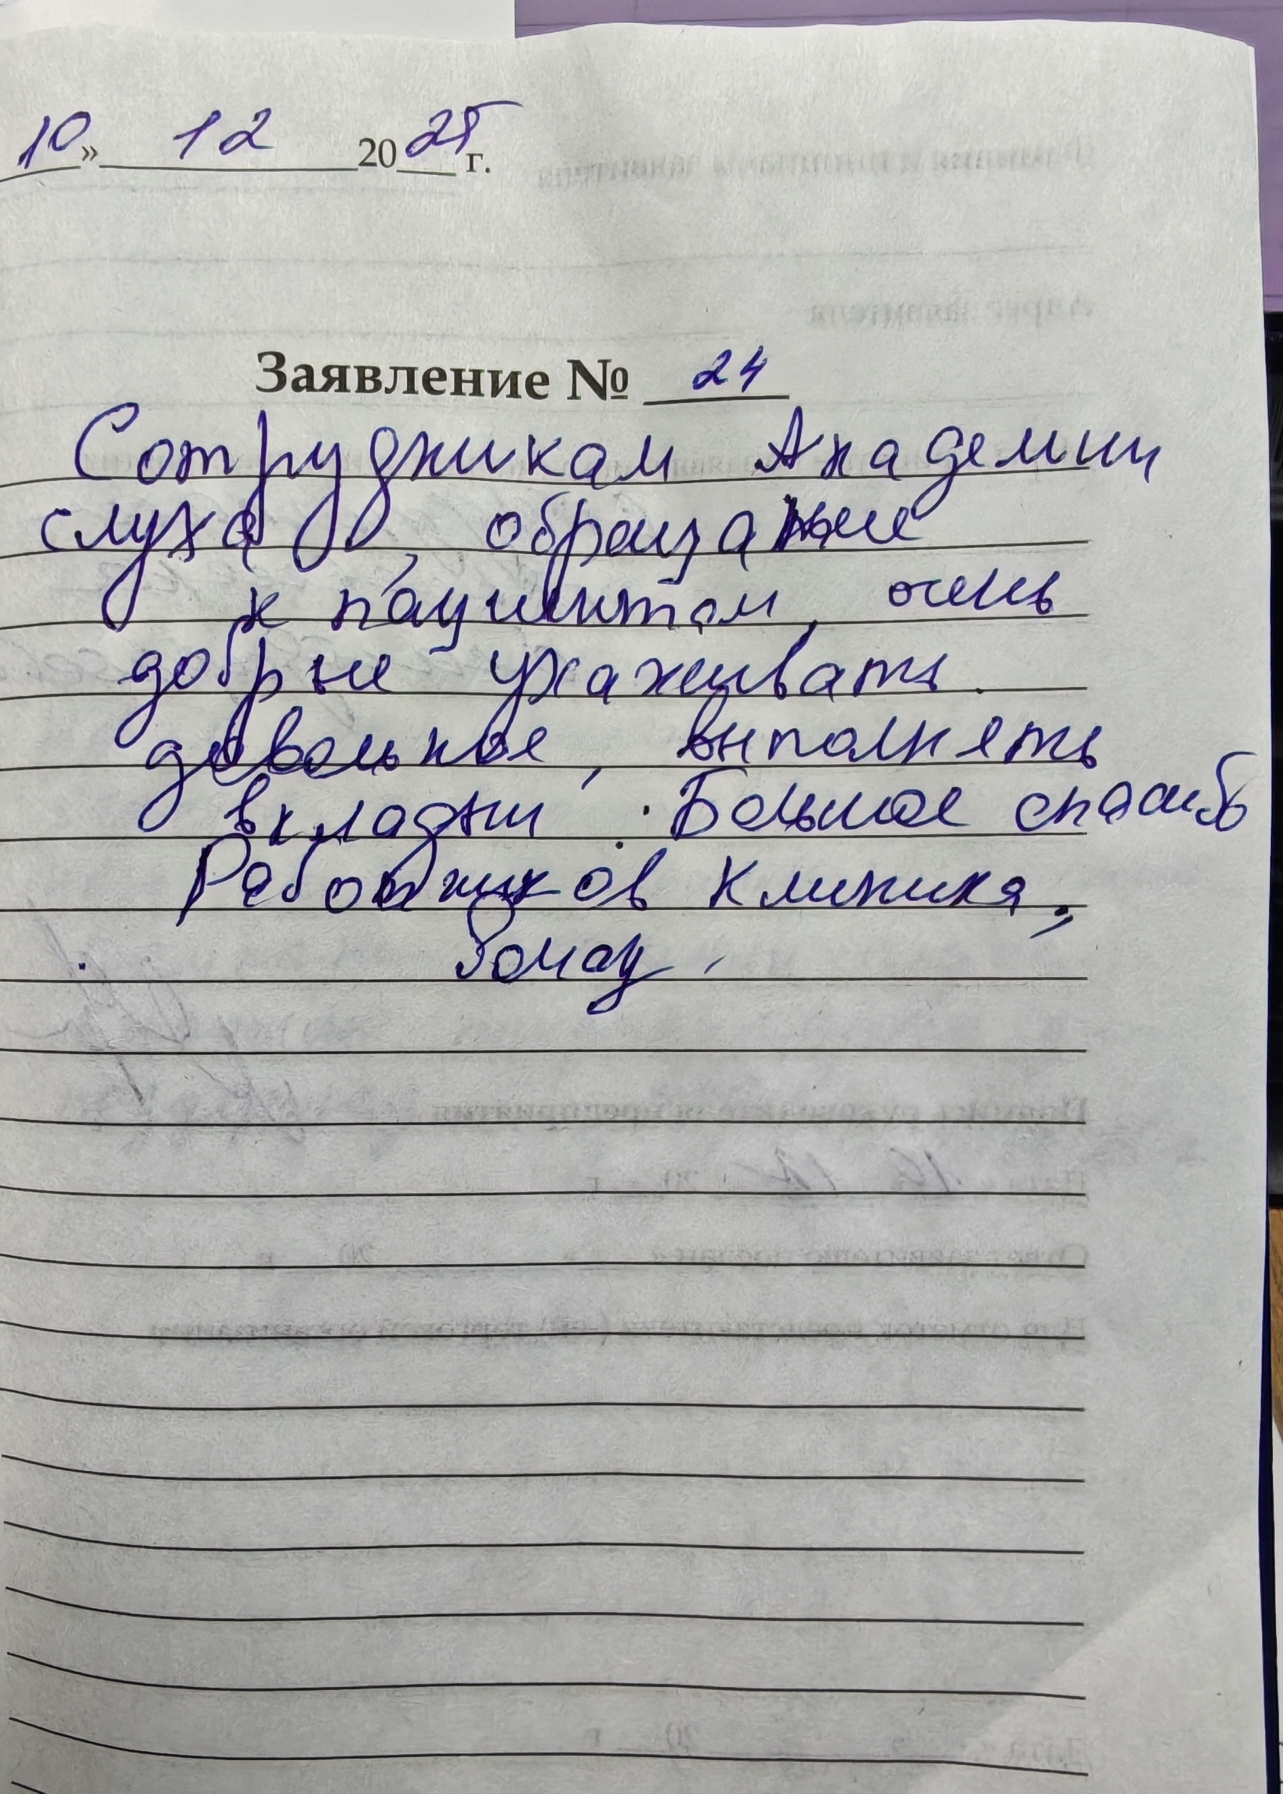 10» 12 2025 г.
Заявление № 24
Сотрудникам Академии
слуха, обращание
к пациентам, очень
добрые ухаживать.
довольные, выполнять
вклады. Большое спасибо
Работников клиника,